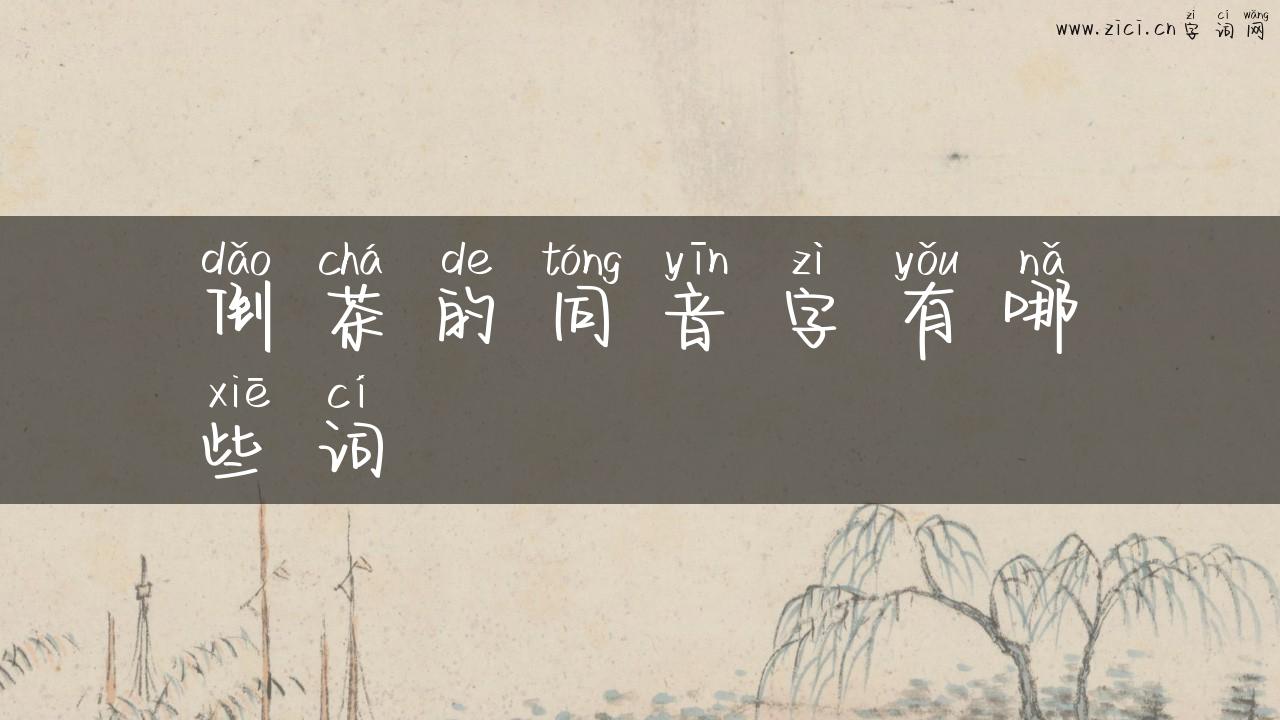 zì cí wǎng
www.zici.cn 字 词 网
dǎo chá de tóng yīn zì yǒu nǎ
倒 茶 的 同 音 字 有 哪
xiē cí
些 词